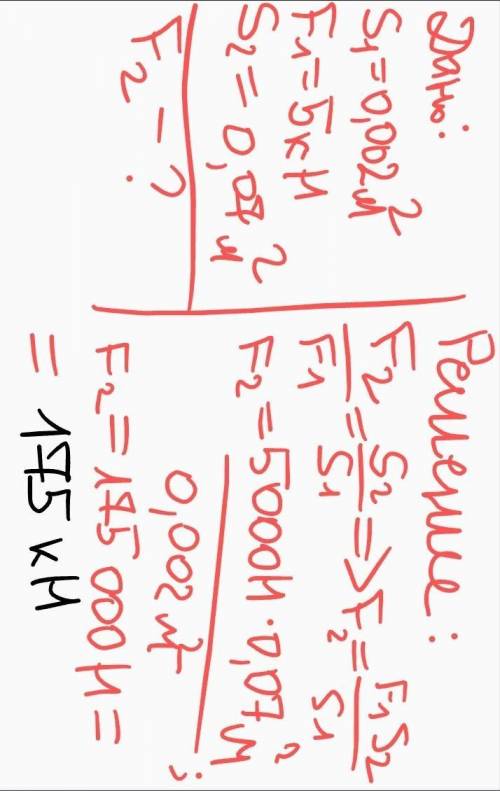 Дано:
S₁=0,002м²
F₁=5кН
S₂=0,07м²
F₂-?
Решение:
F₂/F₁=S₂/S₁=>F₂=F₁S₂/S₁
F₂=5000Н·0,07м²/0,002м²;
F₂=175000Н=
=175кН